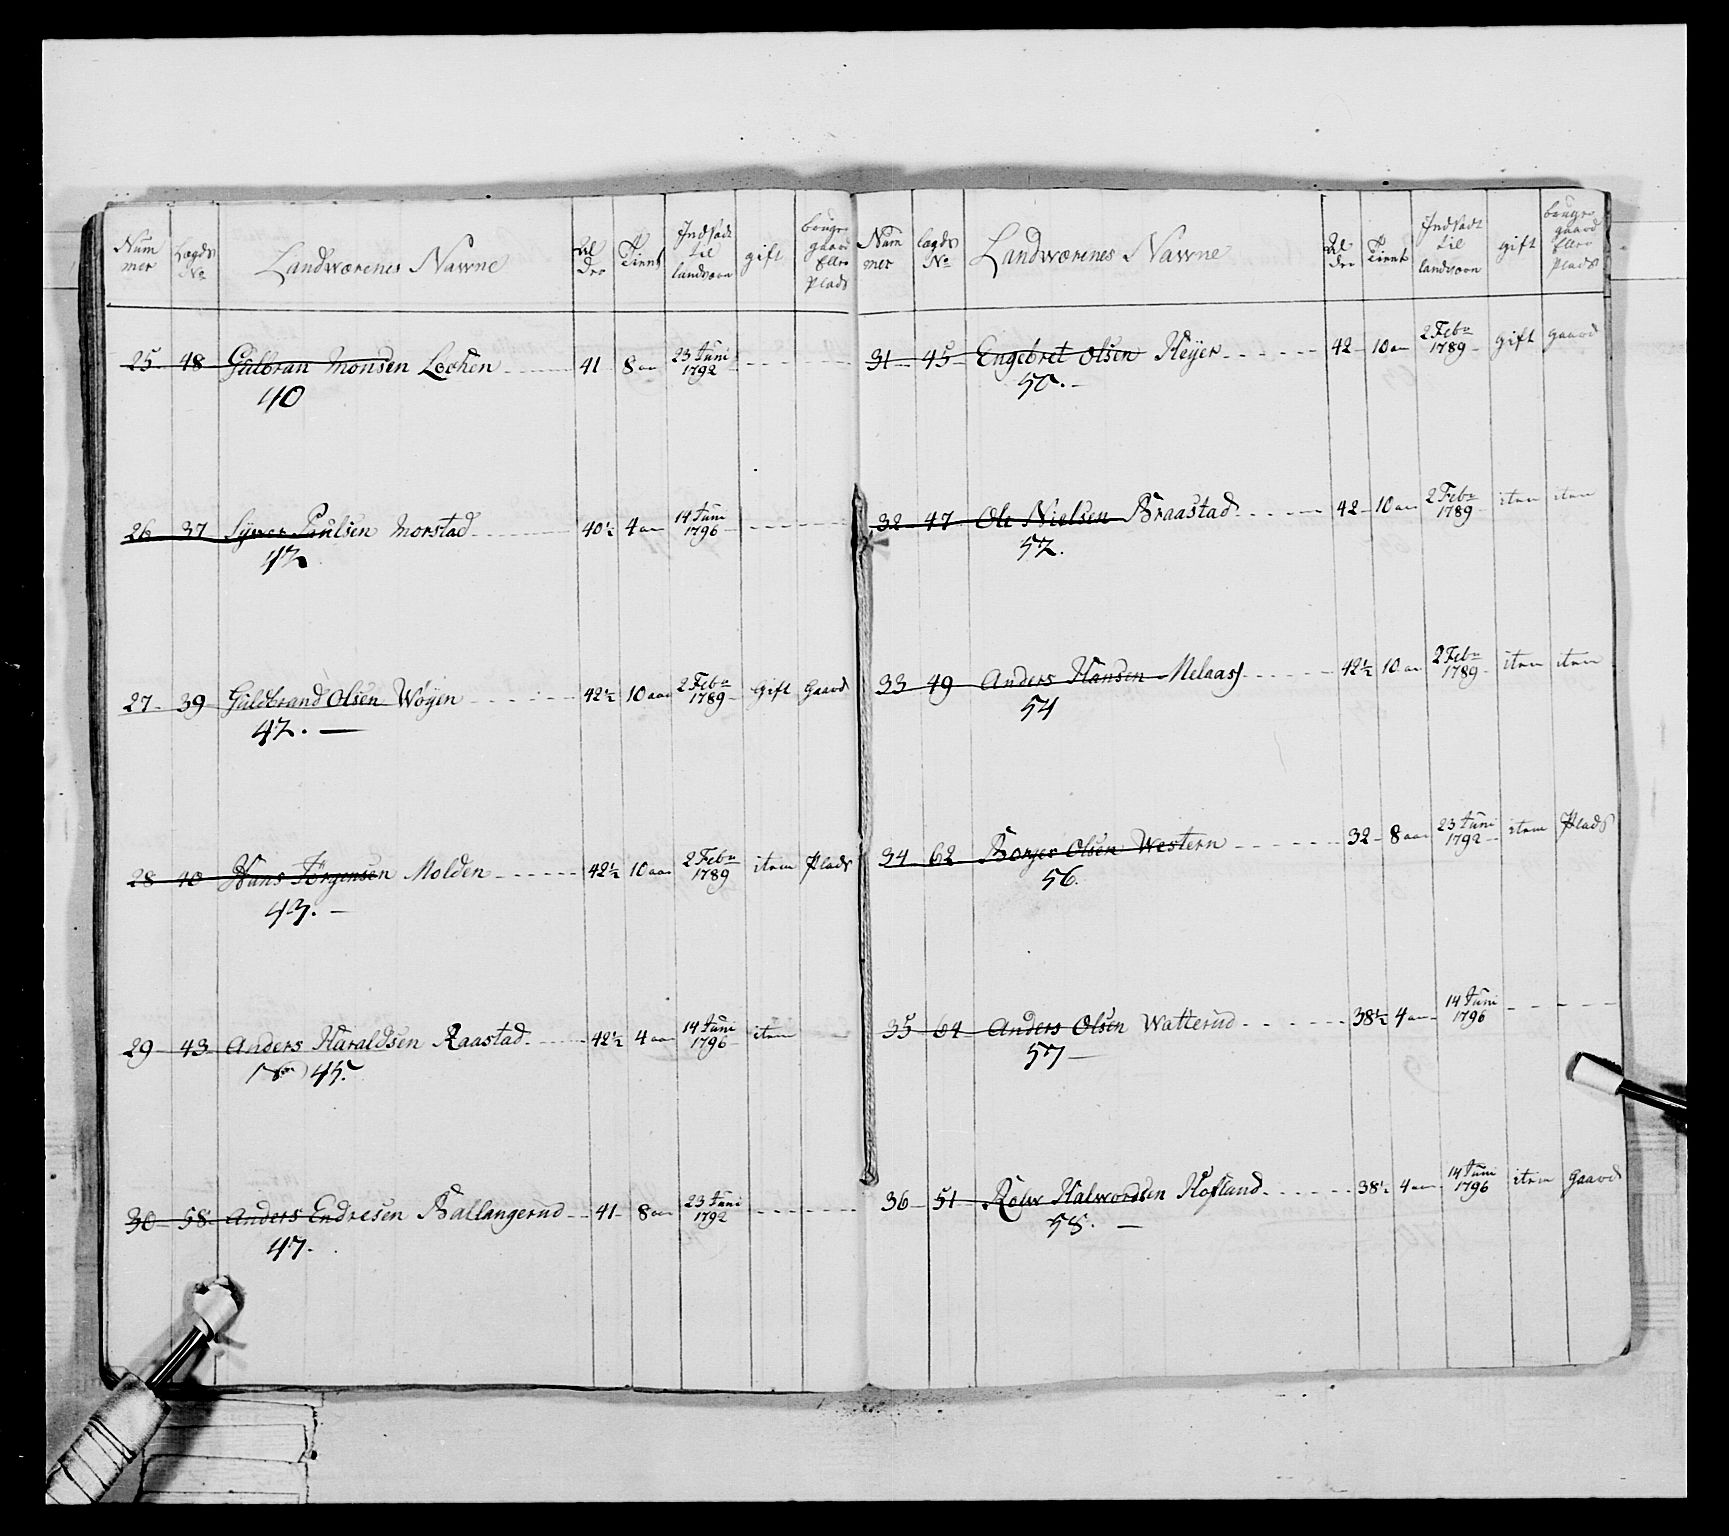 Num mer | Lægds No | Landværenes Nawne | Al der | Tient | Indsadt til landværn | gift | bruger gaard Eller Plads
25 - 48 - Gulbran Monsen Lochen - 41 - 8 aar - 23 Juni 1792
40
26 - 37 - Sywer Poulsen Morstad - 40½ - 4 aar - 14 Juni 1796
42
27 - 39 - Guldbrand Olsen Wøyen - 42½ - 10 aar - 2 Febr 1789 - Gift - Gaard
42. —
28 - 40 - Hans Jörgensen Molden - 42½ - 10 aar - 2 Febr 1789 - item - Plads
43. —
29 - 43 - Anders Haraldsen Raastad - 42½ - 4 aar - 14 Juni 1796 - item
45.
30 - 58 - Anders Endresen Ballangerud - 41 - 8 aar - 23 Juni 1792
47.
Num mer | lægds No | Landværenes Nawne | Al der | Tient | Indsadt til landværn | gift | bruger gaard Eller Plads
31 - 45 - Engebret Olsen Heyer - 42 - 10 aar - 2 Febr 1789 - gift - gaard
50. —
32 - 47 - Ole Nielsen Braastad - 42 - 10 aar - 2 Febr 1789 - item - item
52.
33 - 49 - Anders Hansen Melaas - 42½ - 10 aar - 2 Febr 1789 - item - item
54
34 - 62 - Borger Olsen Western - 32 - 8 aar - 23 Juni 1792 - item - Plads
56.
35 - 64 - Anders Olsen Watterud - 38½ - 4 aar - 14 Juni 1796
57 —
36 - 51 - Rolw Halwordsen Hofland - 38½ - 4 aar - 14 Juni 1796 - item - Gaard
58. —